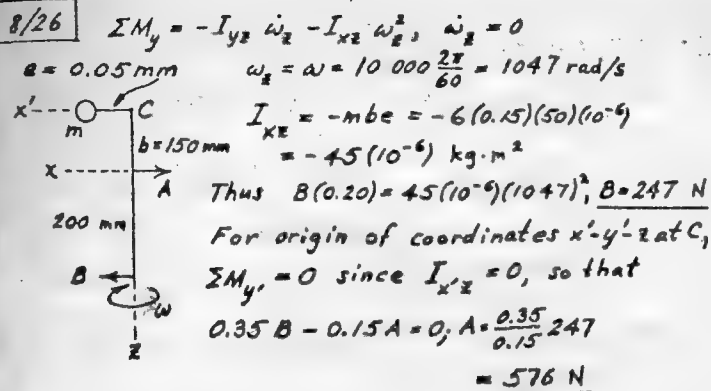 8/26 ΣM_y = -I_yz ω̇_z - I_xz ω_z², ω̇_z = 0
e = 0.05 mm ω_z = ω = 10 000 2π/60 = 1047 rad/s
x' C I_xz = -mbe = -6(0.15)(50)(10⁻⁶)
m
b = 150 mm = -45(10⁻⁶) kg·m²
x A Thus B(0.20) = 45(10⁻⁶)(1047)², B = 247 N
200 mm For origin of coordinates x'-y'-z at C,
B ΣM_y' = 0 since I_x'z = 0, so that
ω
0.35 B - 0.15 A = 0; A = 0.35/0.15 247
z
= 576 N